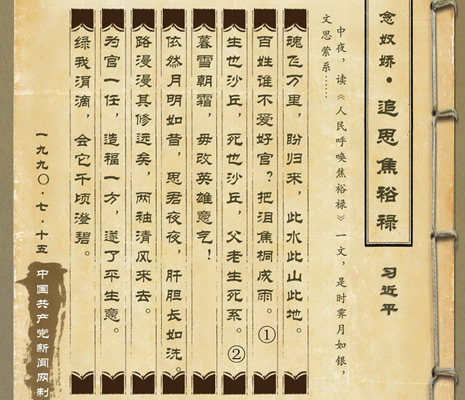 念奴娇·追思焦裕禄
习近平
中夜，读《人民呼唤焦裕禄》一文，是时霁月如银，
文思萦系……
魂飞万里，盼归来，此水此山此地。
百姓谁不爱好官？把泪焦桐成雨。①
生也沙丘，死也沙丘，父老生死系。②
暮雪朝霜，毋改英雄意气！
依然月明如昔，思君夜夜，肝胆长如洗。
路漫漫其修远矣，两袖清风来去。
为官一任，造福一方，遂了平生意。
绿我涓滴，会它千顷澄碧。
一九九〇·七·十五
中国共产党新闻网制